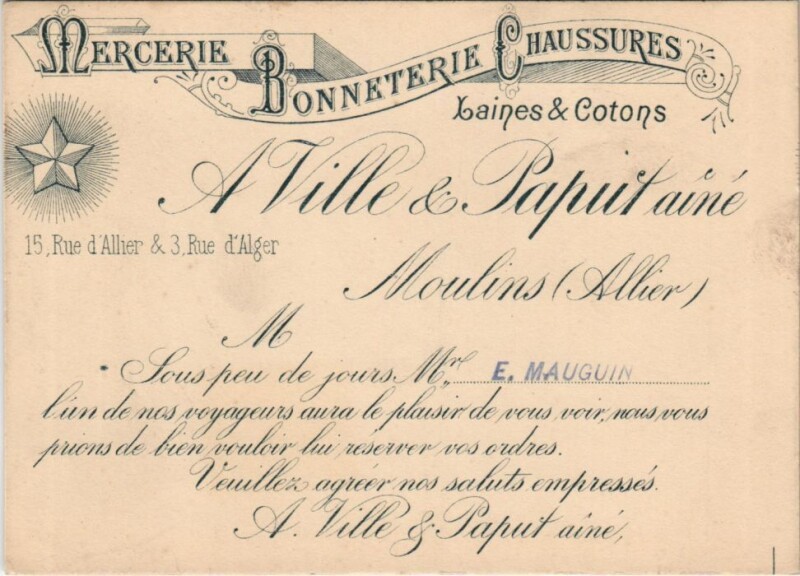 MERCERIE BONNETERIE CHAUSSURES
Laines & Cotons
A Ville & Paput aîné
15, Rue d'Allier & 3, Rue d'Alger
Moulins (Allier)
M
Sous peu de jours Mr. E. MAUGUIN
l'un de nos voyageurs aura le plaisir de vous voir, nous vous
prions de bien vouloir lui réserver vos ordres.
Veuillez agréer nos saluts empressés.
A. Ville & Paput aîné,